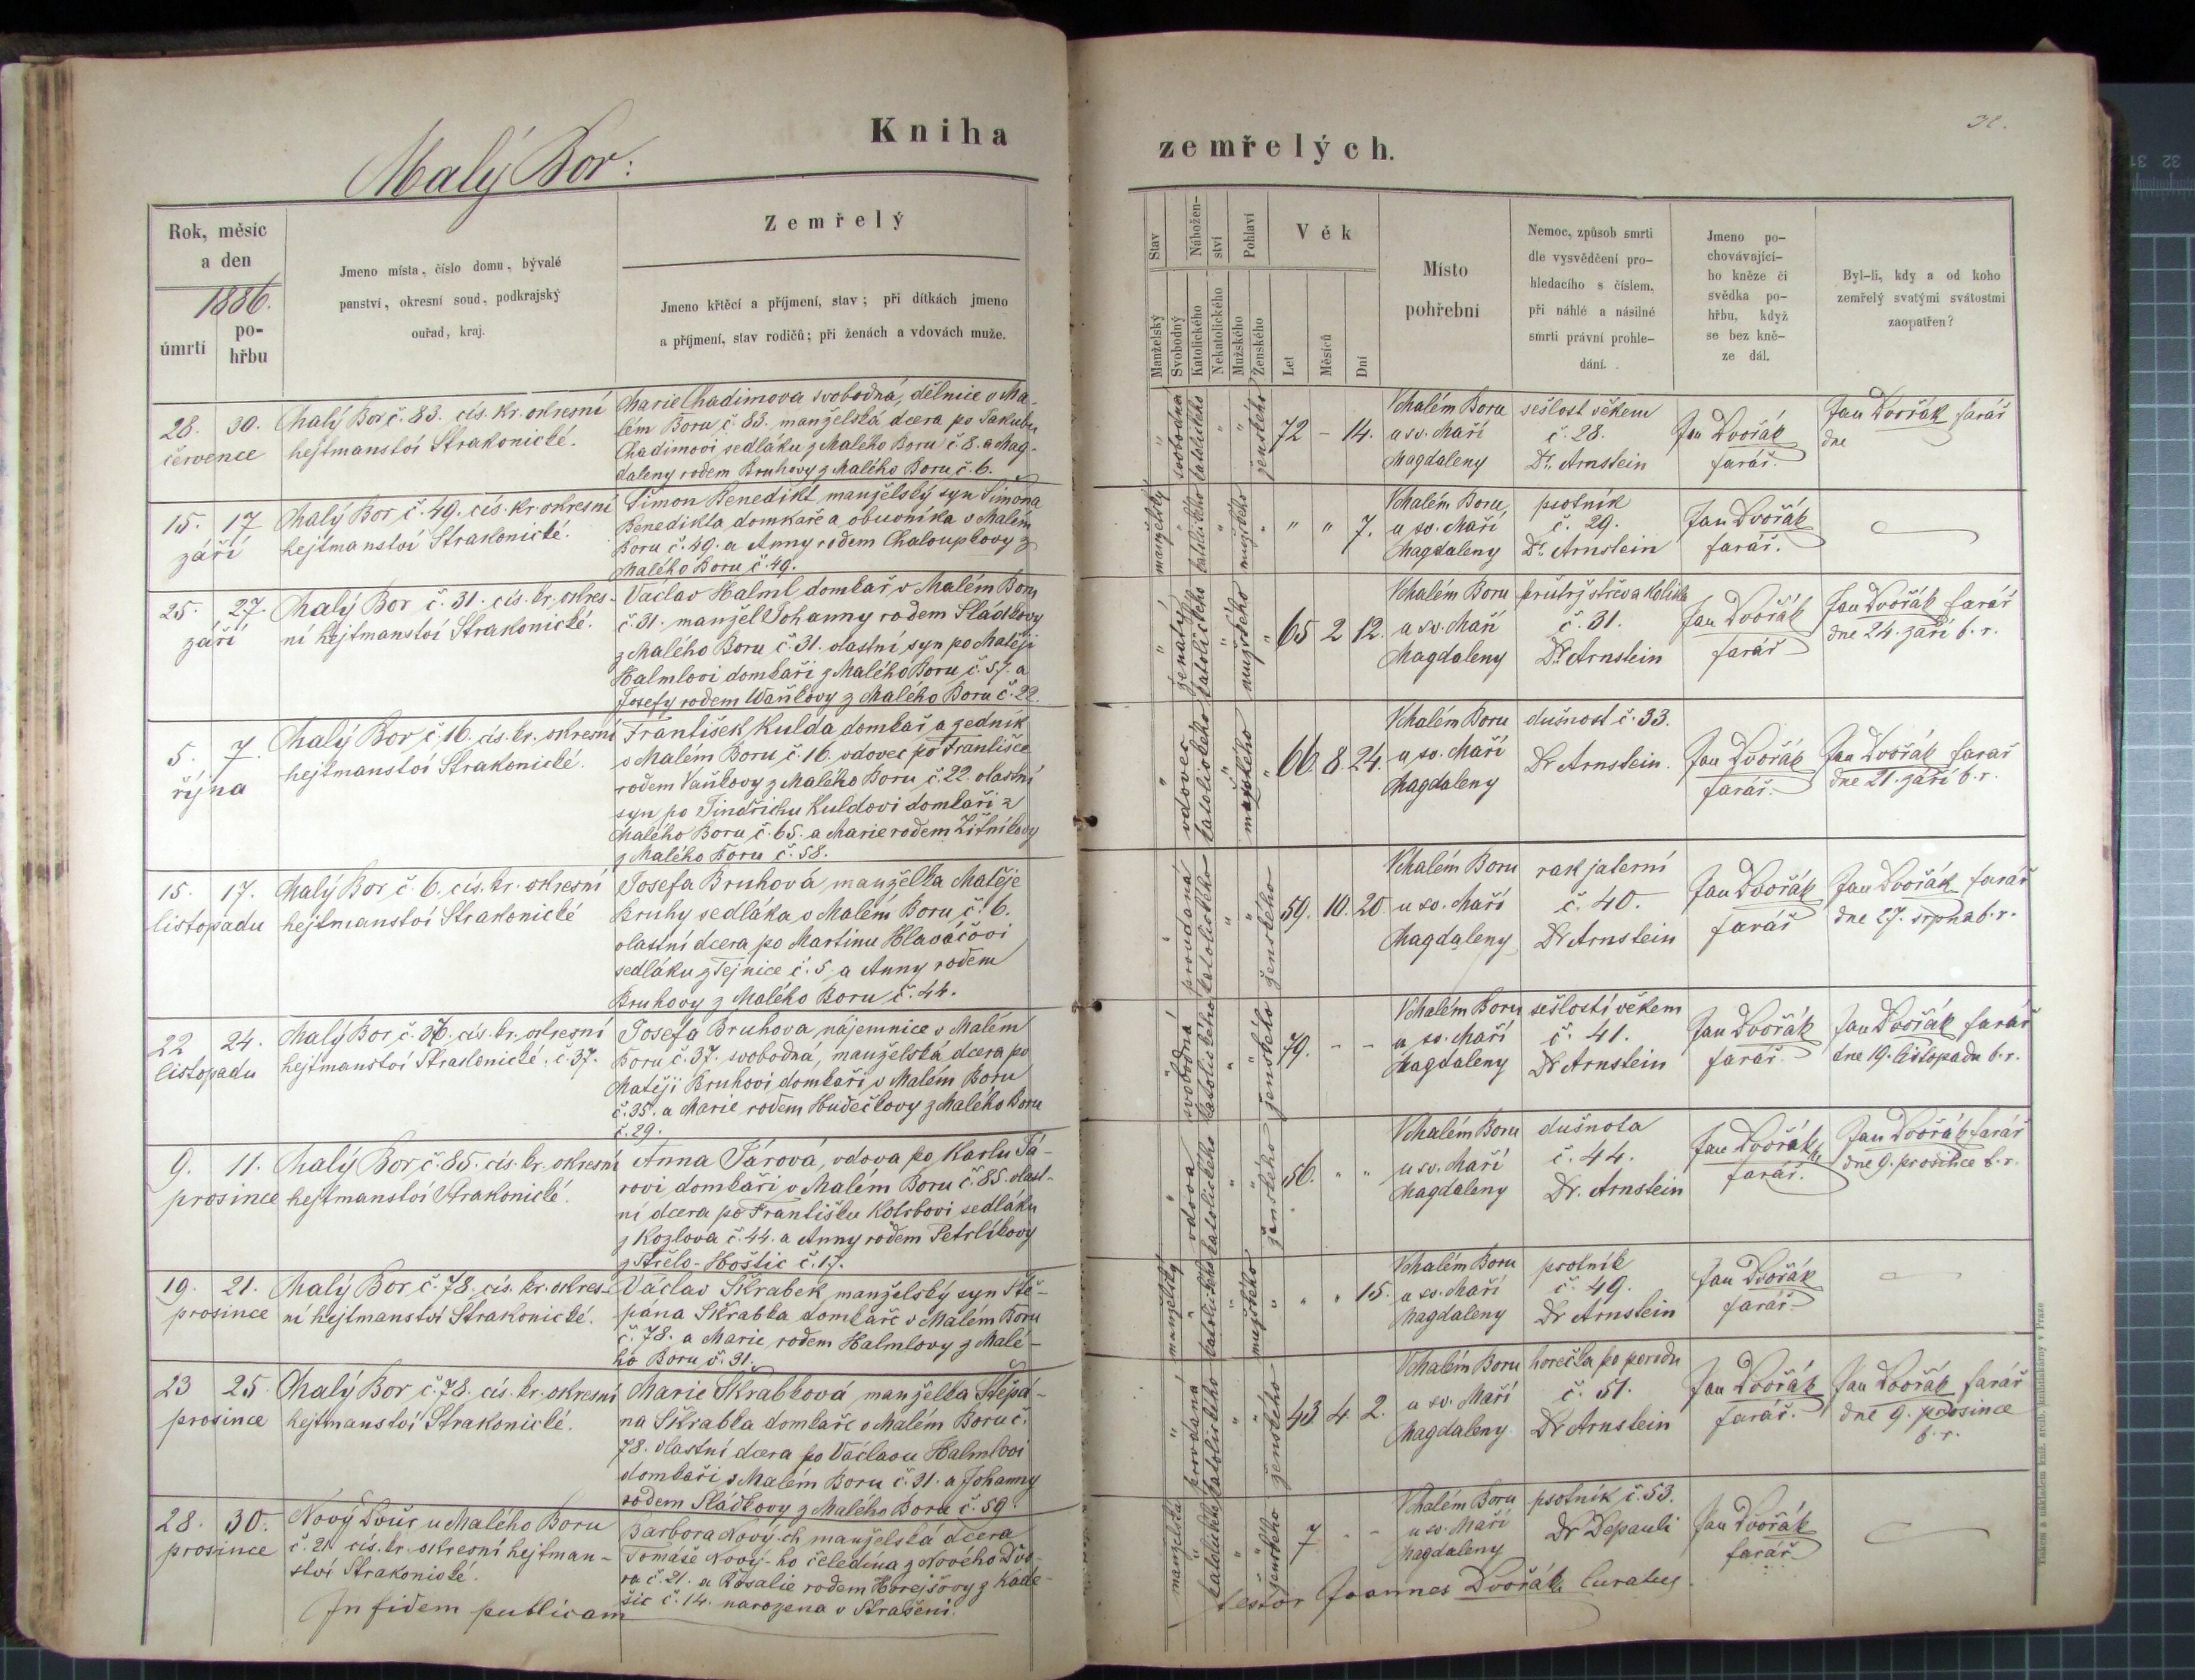 Kniha
Malý Bor:
Rok, měsíc
a den
1886.
úmrtí
po-
hřbu
Jmeno místa, číslo domu, bývalé
panství, okresní soud, podkrajský
ouřad, kraj.
Zemřelý
Jmeno křtěcí a příjmení, stav; při dítkách jmeno
a příjmení, stav rodičů; při ženách a vdovách muže.
28. 30.
července
Malý Bor č. 83. cís. kr. okresní
hejtmanství Strakonické.
Marie Chadimova svobodná, dělnice v Ma-
lém Boru č. 83. manželská dcera po Jakubu
Chadimovi sedláku z Malého Boru č. 8. a Mag-
daleny rodem Bruhovy z Malého Boru č. 6.
15. 17
září
Malý Bor č. 49. cís. kr. okresní
hejtmanství Strakonické.
Šimon Benedikt manželský syn Šimona
Benedikta domkaře a obuvníka v Malém
Boru č. 49. a Anny rodem Chaloupkovy z
Malého Boru č. 49.
25. 27.
září
Malý Bor č. 31. cís. kr. okres-
ní hejtmanství Strakonické.
Václav Halml domkař v Malém Boru
č. 31. manžel Johanny rodem Sládkovy
z Malého Boru č. 31. vlastní syn po Matěji
Halmlovi domkaři z Malého Boru č. 57. a
Josefy rodem Waňkovy z Malého Boru č. 22.
5. 7.
října
Malý Bor č. 16. cís. kr. okresní
hejtmanství Strakonické.
František Kulda domkař a zedník
v Malém Boru č. 16. vdovec po Františce
rodem Vaňkovy z Malého Boru č. 22. vlastní
syn po Jindřichu Kuldovi domkaři z
Malého Boru č. 65. a Marie rodem Žitníkovy
z Malého Boru č. 58.
15. 17.
listopadu
Malý Bor č. 6. cís. kr. okresní
hejtmanství Strakonické
Josefa Bruhová, manželka Matěje
Bruhy sedláka v Malém Boru č. 6.
vlastní dcera po Martinu Hlaváčovi
sedláku z Tejnice č. 5. a Anny rodem
Bruhovy z Malého Boru č. 44.
22 24.
listopadu
Malý Bor č. 36. cís. kr. okresní
hejtmanství Strakonické. č. 37.
Josefa Bruhova, nájemnice v Malém
Boru č. 37. svobodná, manželská dcera po
Matěji Bruhovi domkaři v Malém Boru
č. 35. a Marie rodem Hudečkovy z Malého Boru
č. 29.
9. 11.
prosince
Malý Bor, č. 85. cís. kr. okresní
hejtmanství Strakonické.
Anna Tárová, vdova po Karlu Tá-
rovi domkaři v Malém Boru č. 85. vlast-
ní dcera po Františku Kotrbovi sedláku
z Kozlova č. 44. a Anny rodem Petrlíkovy
z Střelo-Hoštic č. 17.
19. 21.
prosince
Malý Bor č. 78. cís. kr. okres-
ní hejtmanství Strakonické.
Václav Škrabek, manželský syn Ště-
pána Škrabka domkaře v Malém Boru
č. 78. a Marie rodem Halmlovy z Malé-
ho Boru č. 31.
23 25
prosince
Malý Bor č. 78. cís. kr. okresní
hejtmanství Strakonické.
Marie Škrabková, manželka Štěpá-
na Škrabka domkaře v Malém Boru č.
78. vlastní dcera po Václavu Halmlovi
domkaři v Malém Boru č. 31. a Johanny
rodem Sládkovy z Malého Boru č. 59.
28. 30.
prosince
Nový Dvůr u Malého Boru
č. 21. cís. kr. okresní hejtman-
ství Strakonické.
Barbora Nový-ch manželská dcera
Tomáše Nový-ho čeledína z Nového Dvo-
ra č. 21. a Rosalie rodem Horejšovy z Kade-
šic č. 14. narozena v Strašeni.
In fidem publicam
zemřelých.
Stav
Manželský
Svobodný
Nábožen-
ství
Katolického
Nekatolického
Pohlaví
Mužského
Ženského
Věk
Let
Měsíců
Dní
Místo
pohřební
Nemoc, způsob smrti
dle vysvědčení pro-
hledacího s číslem,
při náhlé a násilné
smrti právní prohle-
dání.
Jmeno po-
chovávající-
ho kněze či
svědka po-
hřbu, když
se bez kně-
ze dál.
Byl-li, kdy a od koho
zemřelý svatými svátostmi
zaopatřen?
" svobodná katolického " " ženského 72 – 14.
V Malém Boru
u sv. Maří
Magdaleny
sešlost věkem
č. 28.
Dr. Arnstein
Jan Dvořák
farář.
Jan Dvořák farář
dne
manželský " katolického " mužského " " " 7.
V Malém Boru,
u sv. Maří
Magdaleny
psotník
č. 29.
Dr. Arnstein
Jan Dvořák
farář.
" ženatý katolického " mužského " 65 2 12.
V Malém Boru
u sv. Maří
Magdaleny
č. 31.
Dr. Arnstein
Jan Dvořák
farář
Jan Dvořák farář
dne 24. září b. r.
" vdovec katolického " mužského " 66. 8. 24.
V Malém Boru
u sv. Maří
Magdaleny
dušnost č. 33.
Dr Arnstein.
Jan Dvořák
farář.
Jan Dvořák farář
dne 21. září b. r.
" provdaná katolického " " ženského 59. 10. 20.
V Malém Boru
u sv. Maří
Magdaleny
rak jaterní
č. 40.
Dr Arnstein
Jan Dvořák
farář
Jan Dvořák farář
dne 27. srpna b. r.
" svobodná katolického " " ženského 79. - -
V Malém Boru
u sv. Maří
Magdaleny
sešlostí věkem
č. 41.
Dr Arnstein
Jan Dvořák
farář.
Jan Dvořák farář
dne 19. listopadu b. r.
" vdova katolického " " ženského 56. " "
V Malém Boru
u sv. Maří
Magdaleny
dušnota
č. 44.
Dr. Arnstein
Jan Dvořák
farář.
Jan Dvořák farář
dne 9. prosince b. r.
manželský " katolického " mužského " " " 15.
V Malém Boru
u sv. Maří
Magdaleny
psotník
č. 49.
Dr Arnstein
Jan Dvořák
farář.
" provdaná katolického " " ženského 43 4. 2.
V Malém Boru
u sv. Maří
Magdaleny
horečka po porodu
č. 51.
Dr Arnstein
Jan Dvořák
farář.
Jan Dvořák farář
dne 9. prosince
b. r.
manželská " katolického " " ženského 7 - -
V Malém Boru
u sv. Maří
Magdaleny
psotník č. 53.
Dr Depauli
Jan Dvořák
farář.
testor Joannes Dvořák, Curatus.